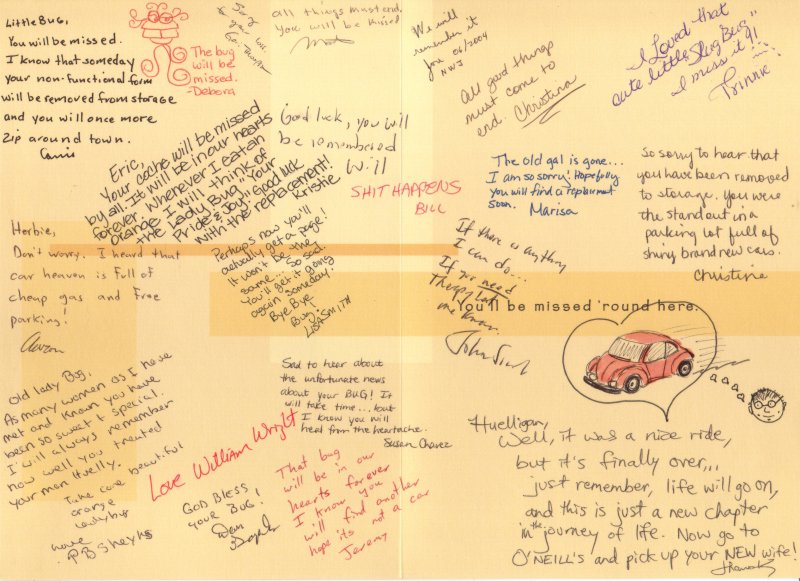 LittleBug,
You will be missed.
I know that someday
your non-functional form
will be removed from storage
and you will once more
zip around town.
The bug
will be
missed.
-Debora
all things must end,
you will be missed
We will
remember it
06/2004
NWJ
All good things
must come to
end. Christina
I Loved that
cute little "Slug Bug"
I miss it!!
Trinnie
Eric,
Your ooche will be missed
by all. It will be in our hearts
forever. Whenever I eat an
orange, I will think of
the Lady Bug. "Your
Pride & Joy". Good luck
with the replacement!
Kristie
Good luck, you will
be remembered
Will
SHIT HAPPENS
BILL
The old gal is gone...
I am so sorry! Hopefully
you will find a replacement
soon. Marisa
So sorry to hear that
you have been removed
to storage. You were
the standout in a
parking lot full of
shiny brand new cars.
Christine
Herbie,
Don't worry. I heard that
car heaven is full of
cheap gas and free
parking!
Aaron
Perhaps now you'll
actually get a page!
It won't be the
same... so sad.
You'll get it going
again someday!
Bye Bye
Bug!
LISA SMITH
If there is anything
I can do...
If you need
Therapy Let
me know.
You'll be missed 'round here.
Old lady Bug,
As many women as I have
met and known you have
been so sweet & special.
I will always remember
how well you treated
your man Huelly.
Take care beautiful
orange
Ladybug
PB Sheyks
Love William Wright
GOD BLESS
YOUR BUG!
Sad to hear about
the unfortunate news
about your BUG! It
will take time... but
I know you will
heal from the heartache.
Susan Chavez
That bug
will be in our
hearts forever
I know you
will find another
hope its not a car
Jeremy
Huelligan,
Well, it was a nice ride,
but it's finally over...
just remember, life will go on,
and this is just a new chapter
in the journey of life. Now go to
O'NEILL'S and pick up your NEW wife!